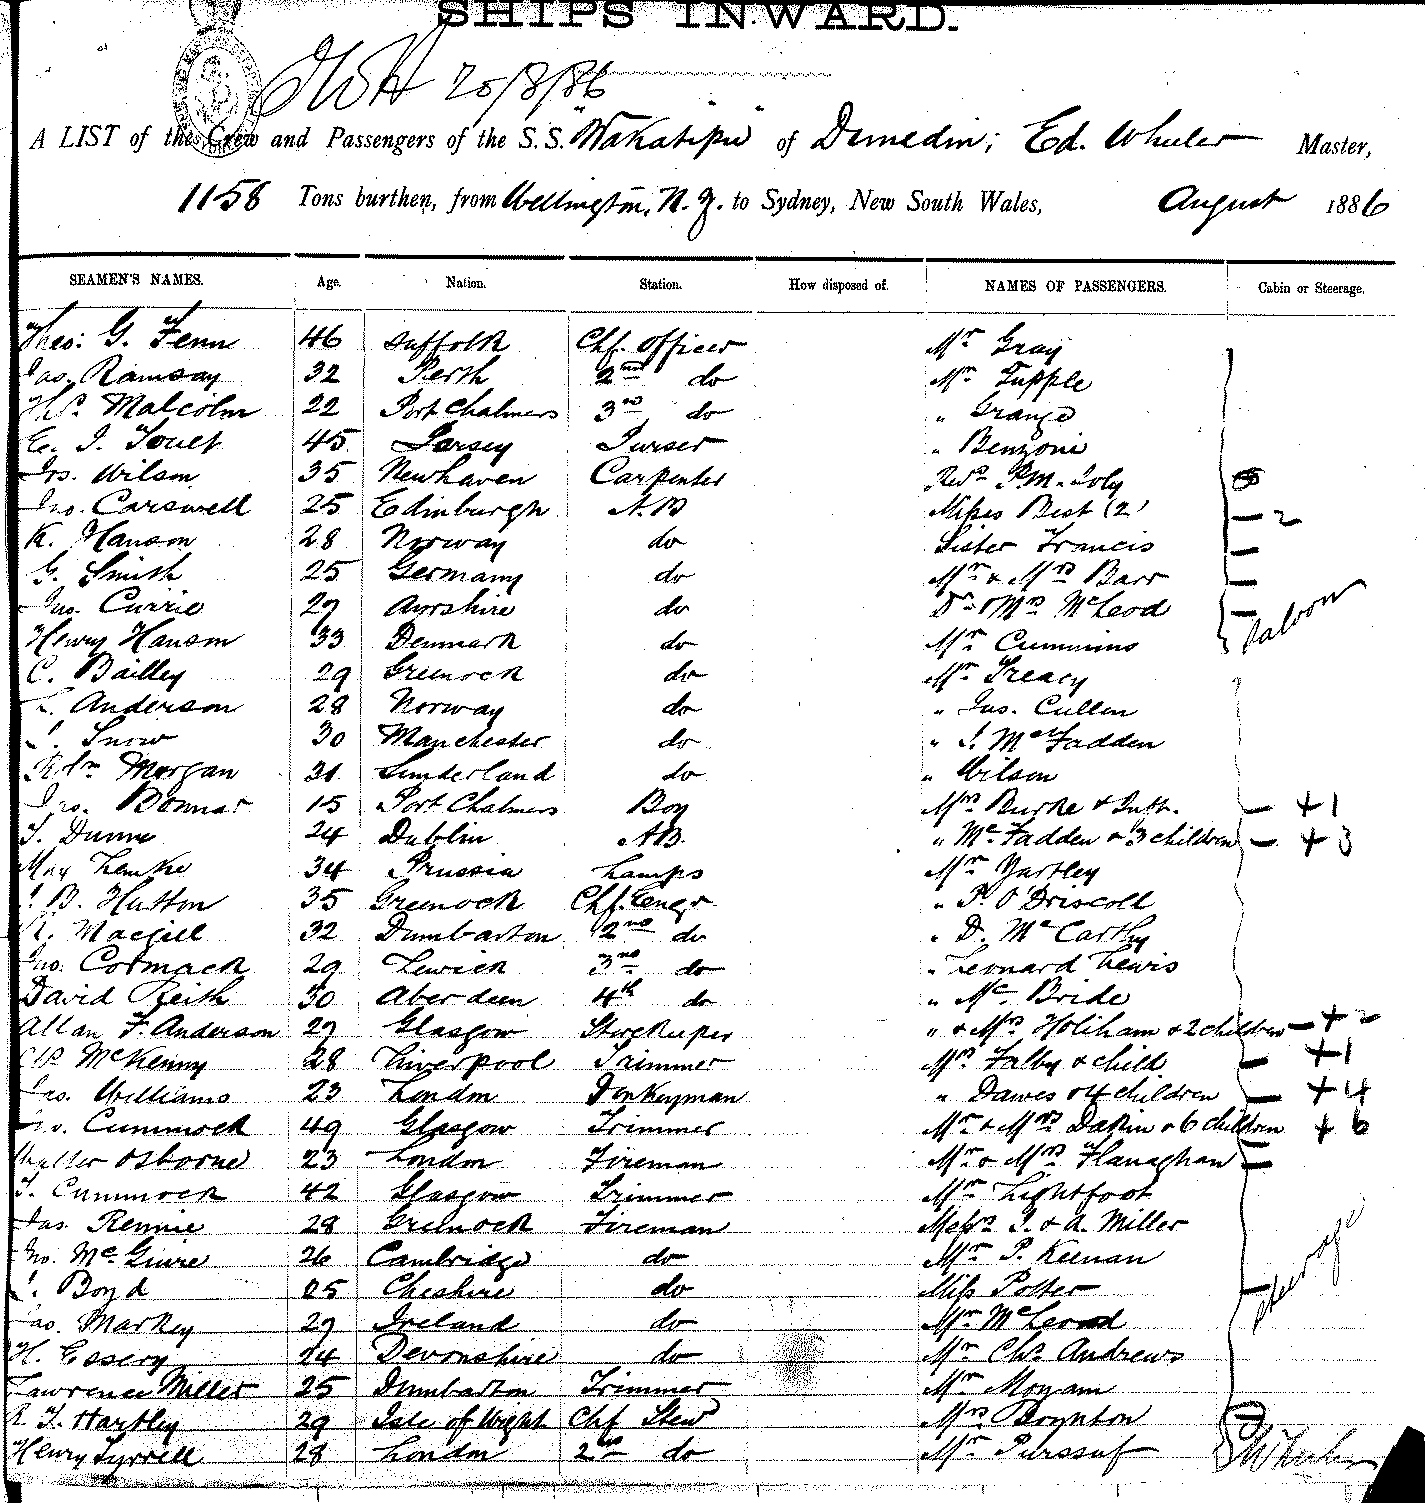 SHIPS INWARD.
20/8/86
A LIST of the Crew and Passengers of the S.S. "Wakatipu" of Dunedin; Ed. Wheeler Master,
1158 Tons burthen, from Wellington, N.Z. to Sydney, New South Wales, August 1886
SEAMEN'S NAMES. Age. Nation. Station. How disposed of. NAMES OF PASSENGERS. Cabin or Steerage.
Theo: G. Fenn 46 Suffolk Chf. Officer Mr Gray
Jas. Ramsay 32 Perth 2nd do Mr Tupple
Thos. Malcolm 22 Port Chalmers 3rd do " Grange
E. J. Touet 45 Jersey Purser " Benzoni
Wilson 35 Newhaven Carpenter Revd P.M. Joly
Jno. Carswell 25 Edinburgh A.B Misses Best (2) — 2
K. Hanson 28 Norway do Sister Francis —
G. Smith 25 Germany do Mr & Mrs Barr —
Jno. Currie 27 Ayrshire do Dr & Mrs McLeod — Saloon
Henry Hanson 33 Denmark do Mr Cummins
C. Bailley 29 Greenock do Mr Treacy
Anderson 28 Norway do " Jas. Cullen
Snow 30 Manchester do " J. McFadden
Morgan 31 Sunderland do " Wilson
Jno. Bonnar 15 Port Chalmers Boy Mrs Burke & Inft. — +1
T. Dunn 24 Dublin AB. " McFadden & 3 children — +3
Max Lemke 34 Prussia Lamps Mr Yartley
B. Hutton 35 Greenock Chf. Engr " P. O'Driscoll
R. Macgill 32 Dumbarton 2nd do " D. McCarthy
Jno. Cormack 29 Lewick 3rd do " Leonard Lewis
David Reith 30 Aberdeen 4th do " McBride
Allan F. Anderson 27 Glasgow Storekeeper " & Mrs Holiham & 2 children — +2
McKenny 28 Liverpool Trimmer Mrs Falby & child — +1
Jas. Williams 23 London Donkeyman " Dawes & 4 children — +4
Cummock 49 Glasgow Trimmer Mr & Mrs Dakin & 6 children + 6
Walter Osborne 23 London Fireman Mr & Mrs Flanaghan —
T. Cummock 42 Glasgow Trimmer Mr Lightfoot
Jas. Rennie 28 Greenock Fireman Messrs J. & A. Miller
Jno. McGuire 26 Cambridge do Mr P. Keenan
Boyd 25 Cheshire do Miss Potter — Steerage
Jas. Markey 27 Ireland do Mr McLeod
H. Essery 24 Devonshire do Mr Chs. Andrews
Lawrence Miller 25 Dumbarton Trimmer Mr Moyam
R. T. Hartley 29 Isle of Wight Chf Stewd Mrs Boynton —
Henry Tyrrell 28 London 2nd do Mr Purssuf Wheeler